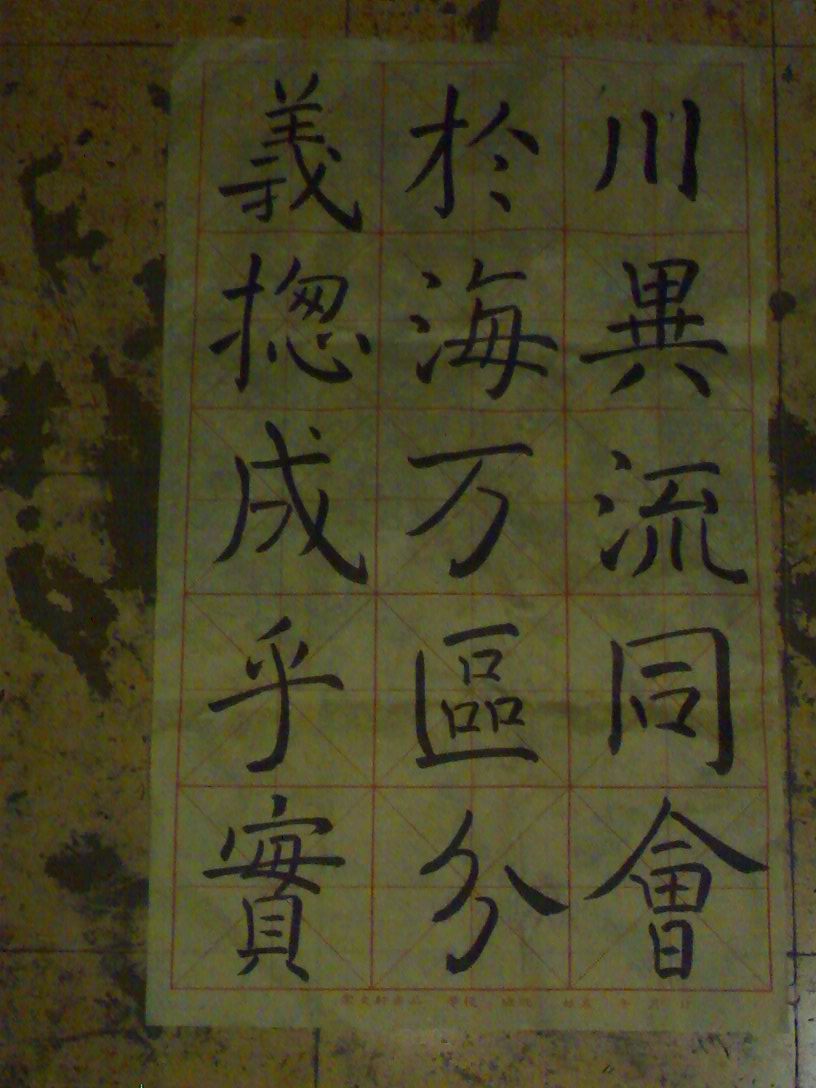 川異流同會
於海万區分
義揔成乎實